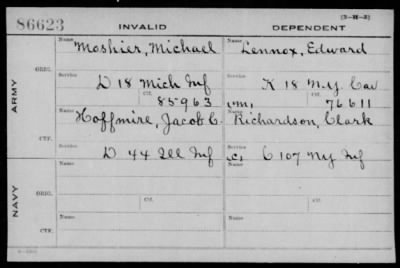 [3-H-5]
86623 INVALID DEPENDENT
Name Name
Moshier, Michael Lennox, Edward
ORIG.
Service Service
D 18 Mich Inf K 18 N.Y. Cav
Ctf. Ctf.
85963 (m) 76611
ARMY
Name Name
Hoffmire, Jacob C. Richardson, Clark
CTF.
Service Service
D 44 Ill Inf (c) C 107 NY Inf
Name Name
ORIG.
Service Service
Ctf. Ctf.
NAVY
Name Name
CTF.
Service Service